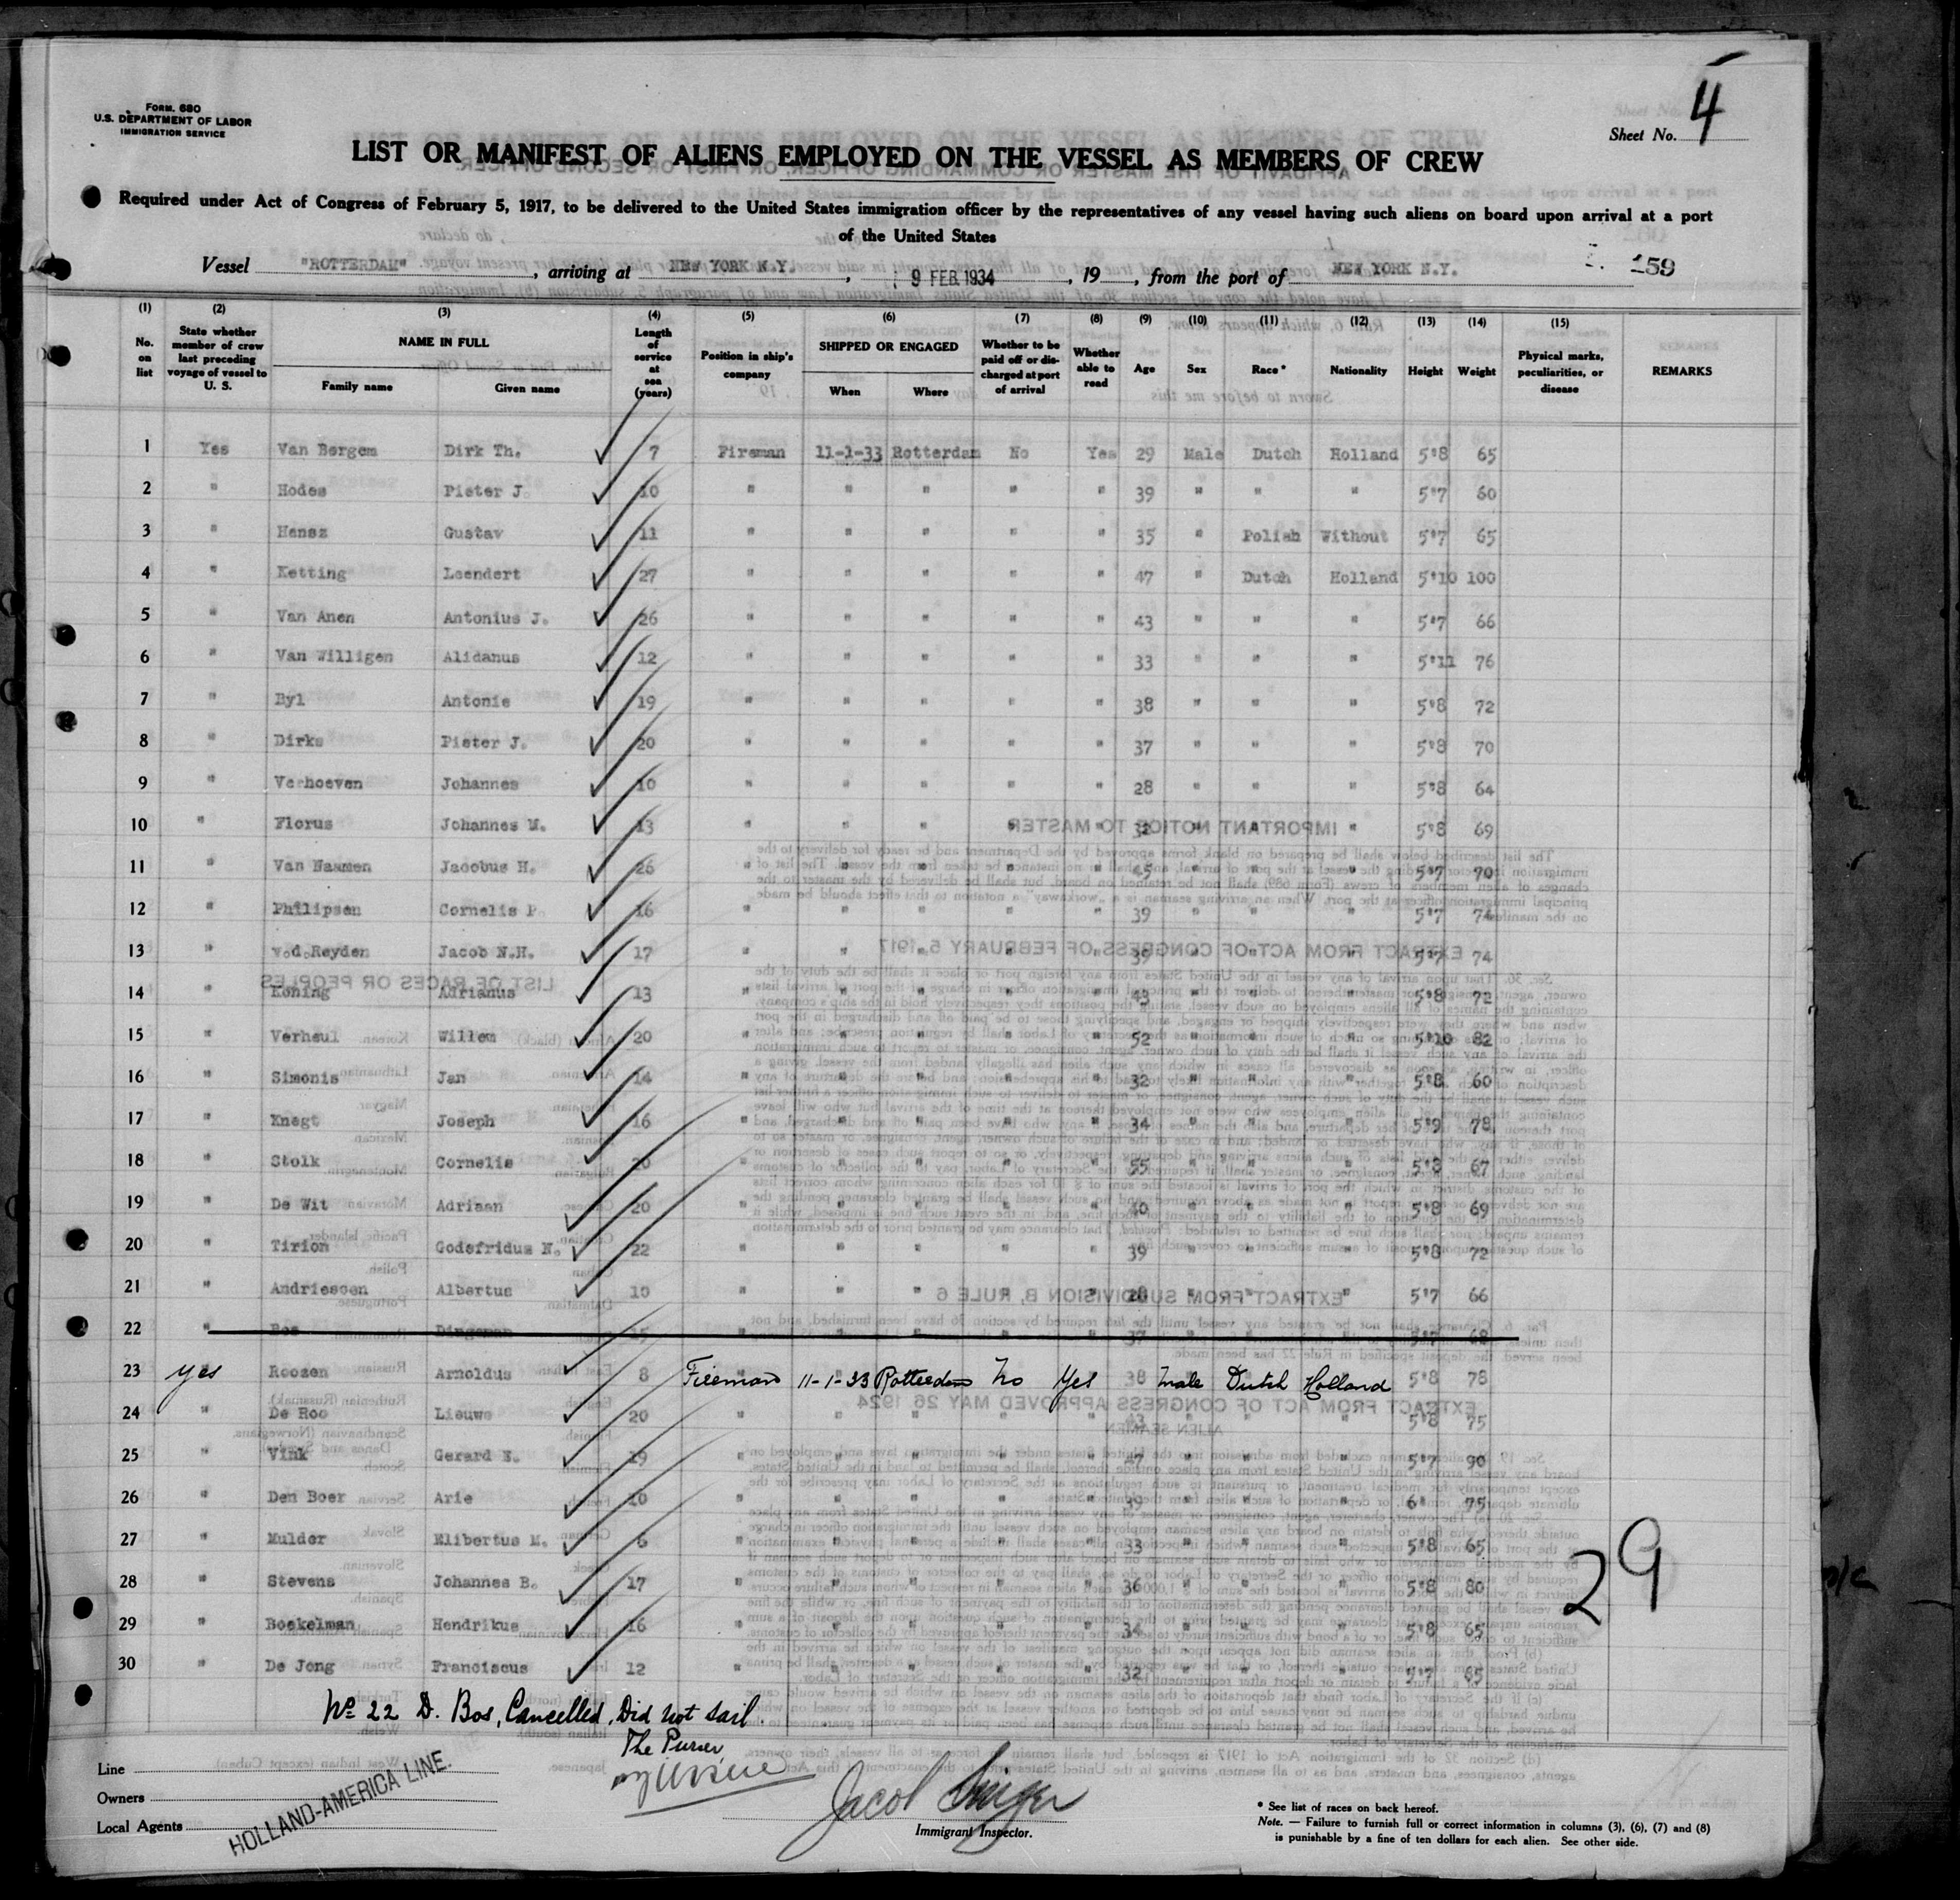 FORM. 680
U.S. DEPARTMENT OF LABOR
IMMIGRATION SERVICE
Sheet No. 4
LIST OR MANIFEST OF ALIENS EMPLOYED ON THE VESSEL AS MEMBERS OF CREW
Required under Act of Congress of February 5, 1917, to be delivered to the United States immigration officer by the representatives of any vessel having such aliens on board upon arrival at a port
of the United States
Vessel "ROTTERDAM", arriving at NEW YORK N.Y., 9 FEB. 1934, 19, from the port of NEW YORK N.Y. 159
(1) (2) (3) (4) (5) (6) (7) (8) (9) (10) (11) (12) (13) (14) (15)
No. on list State whether member of crew last preceding voyage of vessel to U. S. NAME IN FULL Family name Given name Length of service at sea (years) Position in ship's company SHIPPED OR ENGAGED When Where Whether to be paid off or discharged at port of arrival Whether able to read Age Sex Race* Nationality Height Weight Physical marks, peculiarities, or disease REMARKS
1 Yes Van Bergem Dirk Th. 7 Fireman 11-1-33 Rotterdam No Yes 29 Male Dutch Holland 5'8 65
2 " Hodes Pieter J. 10 " " " " " 39 " " " 5'7 60
3 " Hensz Gustav 11 " " " " " 35 " Polish Without 5'7 65
4 " Ketting Leendert 27 " " " " " 47 " Dutch Holland 5'10 100
5 " Van Anen Antonius J. 26 " " " " " 43 " " " 5'7 66
6 " Van Willigen Alidanus 12 " " " " " 33 " " " 5'11 76
7 " Byl Antonie 19 " " " " " 38 " " " 5'8 72
8 " Dirks Pieter J. 20 " " " " " 37 " " " 5'8 70
9 " Verhoeven Johannes 10 " " " " " 28 " " " 5'8 64
10 " Florus Johannes M. 13 " " " " " 32 " " " 5'8 69
11 " Van Naamen Jacobus H. 26 " " " " " 45 " " " 5'7 70
12 " Philipsen Cornelis P. 16 " " " " " 39 " " " 5'7 74
13 " v.d.Reyden Jacob N.H. 17 " " " " " 39 " " " 5'7 74
14 " Koning Adrianus 13 " " " " " 43 " " " 5'8 72
15 " Verheul Willem 20 " " " " " 52 " " " 5'10 82
16 " Simonis Jan 14 " " " " " 32 " " " 5'8 60
17 " Knegt Joseph 16 " " " " " 34 " " " 5'9 78
18 " Stolk Cornelis 20 " " " " " 55 " " " 5'8 67
19 " De Wit Adriaan 20 " " " " " 40 " " " 5'8 69
20 " Tirion Godefridus N. 22 " " " " " 39 " " " 5'8 72
21 " Andriessen Albertus 10 " " " " " 28 " " " 5'7 66
22 " Bos Dingeman 15 " " " " " 37 " " " 5'7 68
23 yes Roozen Arnoldus 8 Fireman 11-1-33 Rotterdam No Yes 38 Male Dutch Holland 5'8 78
24 " De Roo Lieuwe 20 " " " " " 43 " " " 5'8 75
25 " Vink Gerard E. 19 " " " " " 47 " " " 5'7 90
26 " Den Boer Arie 10 " " " " " 39 " " " 6' 75
27 " Mulder Elibertus M. 6 " " " " " 33 " " " 5'8 65
28 " Stevens Johannes B. 17 " " " " " 36 " " " 5'8 80
29 " Boekelman Hendrikus 16 " " " " " 34 " " " 5'8 65
30 " De Jong Franciscus 12 " " " " " 32 " " " 5'7 65
29
No 22 D. Bos, Cancelled, Did not sail.
The Purser,
Line
Owners
Local Agents
HOLLAND-AMERICA LINE.
Jacob
Immigrant Inspector.
* See list of races on back hereof.
Note. — Failure to furnish full or correct information in columns (3), (6), (7) and (8)
is punishable by a fine of ten dollars for each alien. See other side.